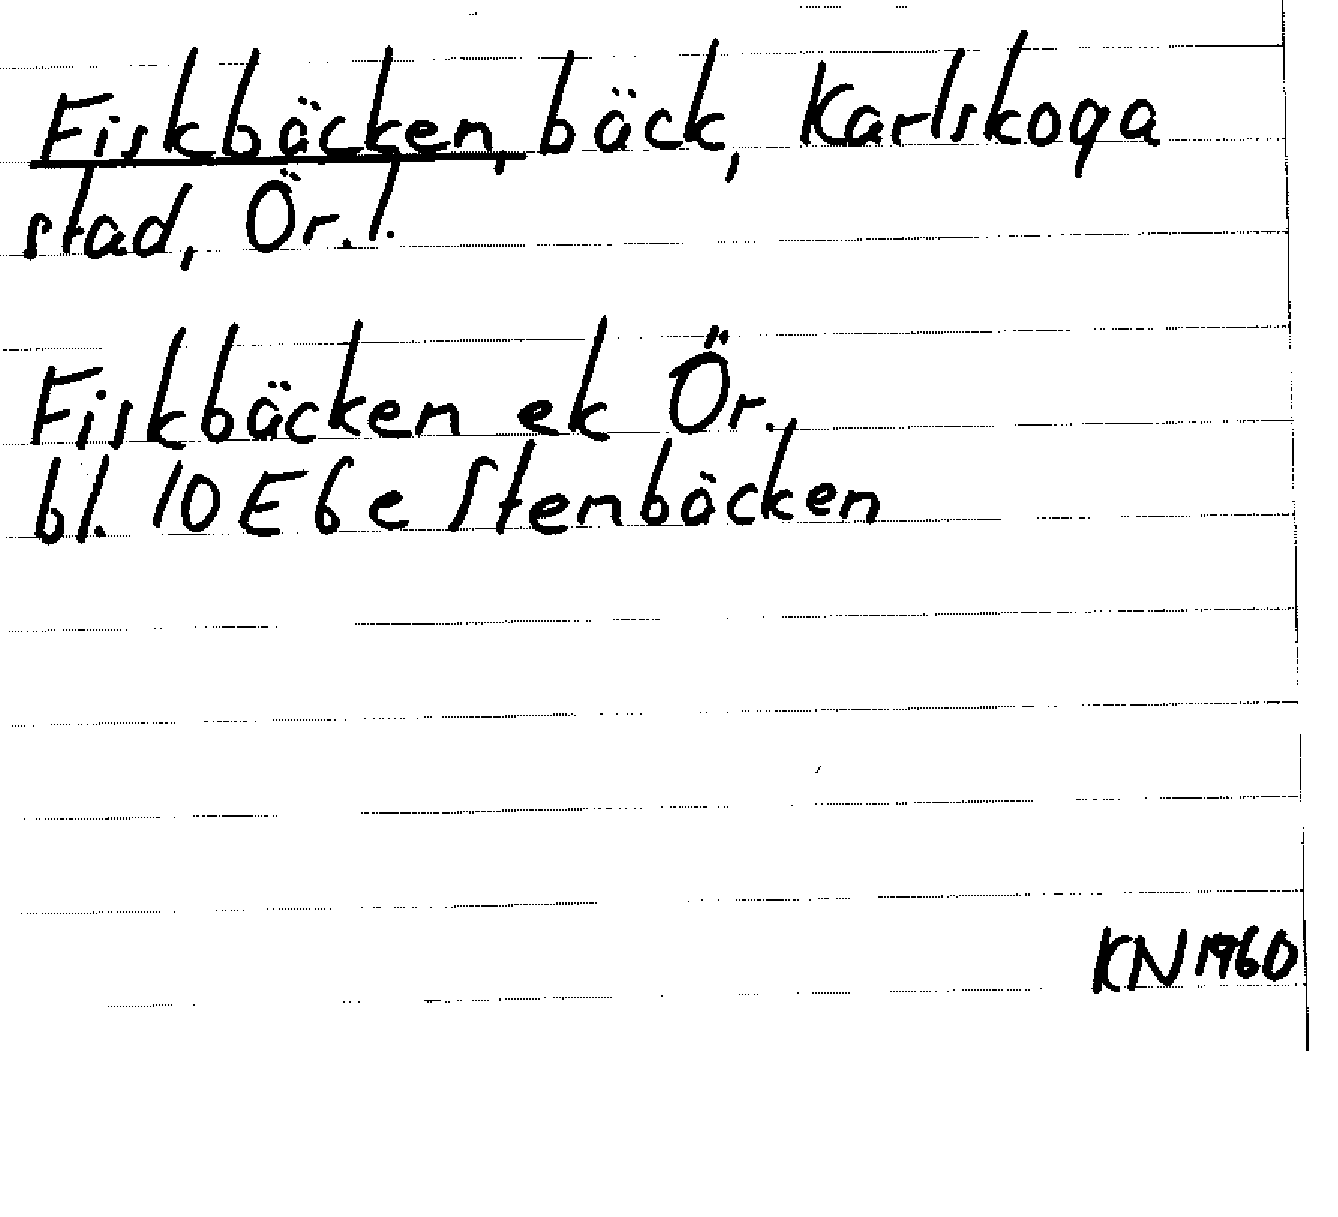 Fiskbäcken, bäck, Karlskoga
stad, Ör. l.
Fiskbäcken ek Ör.
bl. 10 E 6 e Stenbäcken
KN 1960